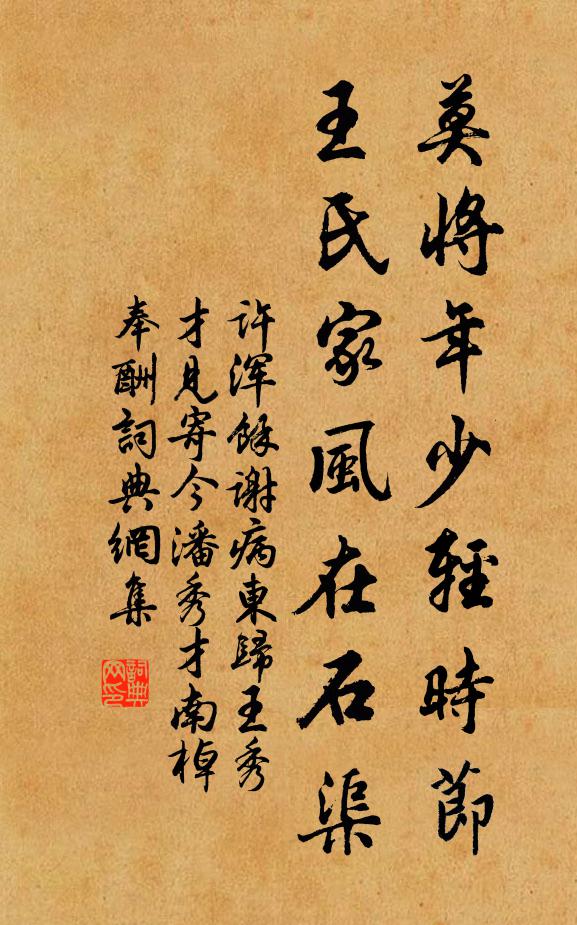 莫將年少輕時節
王氏家風在石渠
許渾餘謝病東歸王秀
才見寄今潘秀才南棹
奉酬詞典網集
詞典網印